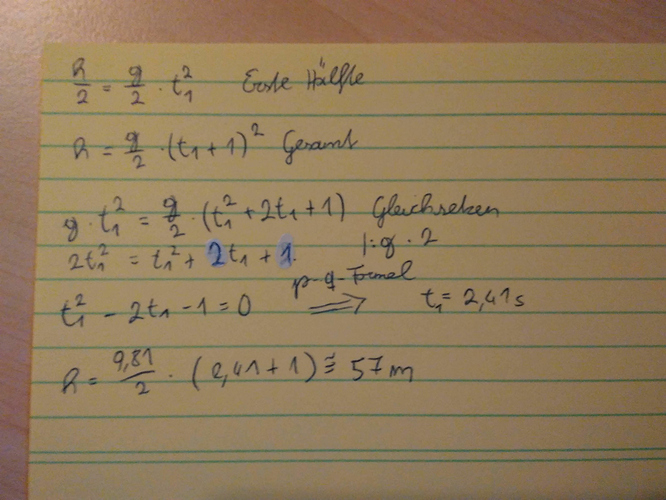 h/2 = g/2 · t₁² Erste Hälfte
h = g/2 · (t₁ + 1)² Gesamt
g · t₁² = g/2 · (t₁² + 2t₁ + 1) Gleichsetzen
2t₁² = t₁² + 2t₁ + 1. |:g · 2
t₁² - 2t₁ - 1 = 0 p-q-Formel ⟹ t₁ = 2,41s
h = 9,81/2 · (2,41 + 1)² ≅ 57m